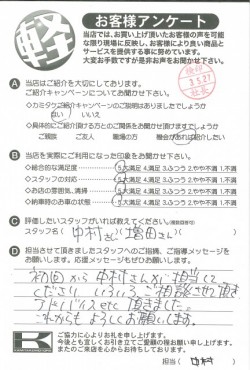 軽
お客様アンケート
当店では、お買い上げ頂いたお客様の声を可能
な限り現場に反映し、お客様により良い商品と
サービスを提供する事に努めています。
大変お手数ですが是非お声をお聞かせ下さい。
A 当店はご紹介を大切にしております。
ご紹介キャンペーンについてお聞かせ下さい。
◇カミタケご紹介キャンペーンのご説明はありましたでしょうか
はい いいえ
◇具体的にご紹介頂ける方との関係をお聞かせ頂けますでしょうか
ご親族 ご友人 職場の方 機会があれば紹介したい
B 当店を実際にご利用になった印象をお聞かせ下さい。
◇総合的な満足度 5.大満足 4.満足 3.ふつう 2.やや不満 1.不満
◇スタッフの対応 5.大満足 4.満足 3.ふつう 2.やや不満 1.不満
◇お店の雰囲気、清掃 5.大満足 4.満足 3.ふつう 2.やや不満 1.不満
◇納車時のお車の状態 5.大満足 4.満足 3.ふつう 2.やや不満 1.不満
C 評価したいスタッフがいれば教えてください。(複数回答可)
スタッフ名( 中村さん 増田さん )
D 担当させて頂きましたスタッフへのご指摘、ご指導メッセージを
お願いします。応援メッセージもぜひお願いします。
初回から中村さんに担当して
くださり いろいろご相談させて頂き
アドバイスを 頂きました。
これからもよろしくお願いします。
K
ご協力に心よりお礼を申し上げます。
今後とも宜しくお引き立てご愛顧の程お願い申し上げます。
またのご来店を心からお待ちしております。
担当( 中村 )